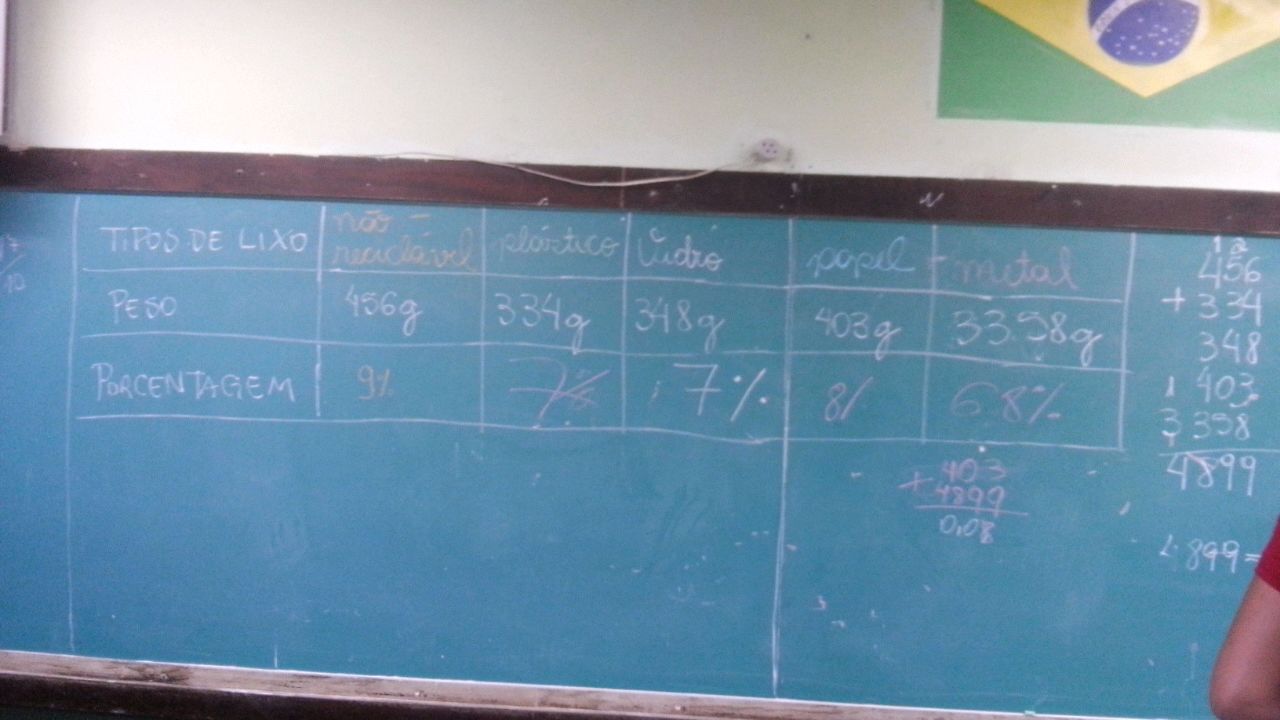 TIPOS DE LIXO não-reciclável plástico vidro papel metal
PESO 456g 334g 348g 403g 3358g
PORCENTAGEM 9% 7% 7% 8% 68%
456
+ 334
348
403
3358
4899
403
4899
0,08
4.899=